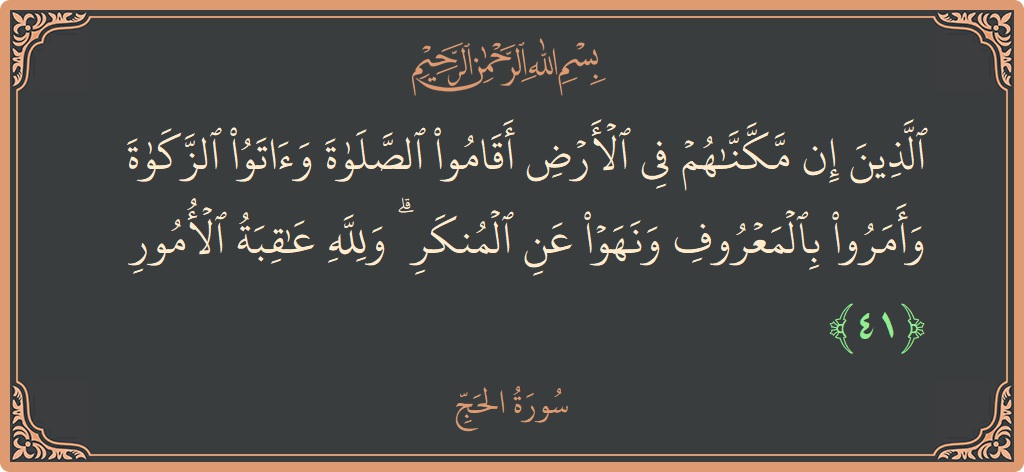 بِسْمِ اللَّهِ الرَّحْمَٰنِ الرَّحِيمِ
ٱلَّذِينَ إِن مَّكَّنَّـٰهُمۡ فِی ٱلۡأَرۡضِ أَقَامُوا۟ ٱلصَّلَوٰةَ وَءَاتَوُا۟ ٱلزَّكَوٰةَ
وَأَمَرُوا۟ بِٱلۡمَعۡرُوفِ وَنَهَوۡا۟ عَنِ ٱلۡمُنكَرِۗ وَلِلَّهِ عَـٰقِبَةُ ٱلۡأُمُورِ
﴿٤١﴾
سُورَةُ الحَجِّ